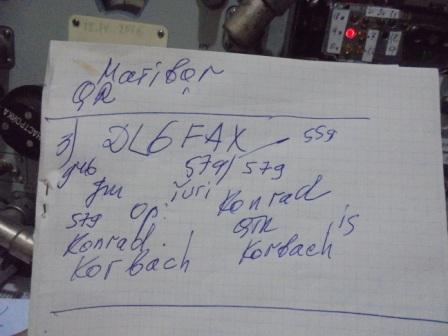 Mariban
QR
3) DL6FAX 559
579/579
op. iuri Konrad
579 QTH is
Konrad. Korbach
Korbach
НАСТРОЙКА